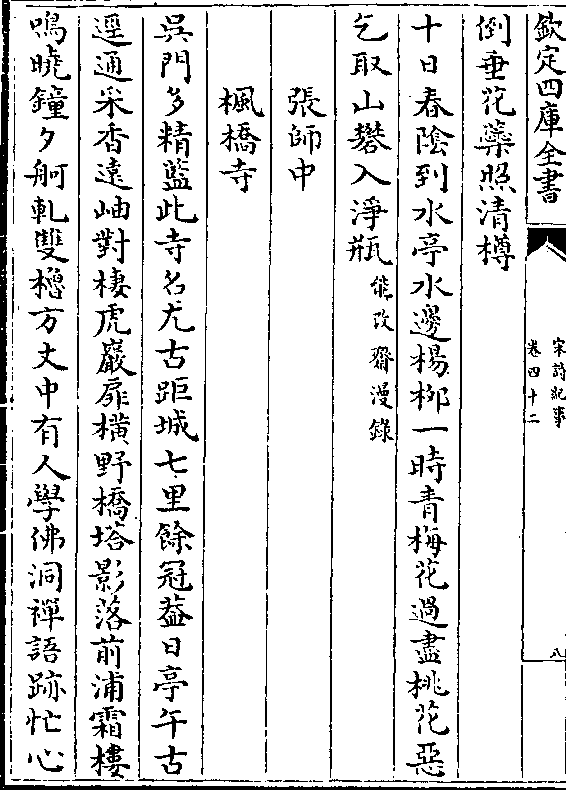 欽定四庫全書
宋詩紀事
卷四十二
八
倒垂花蘂照清樽
十日春陰到水亭水邊楊栁一時青梅花過盡桃花惡
乞取山礬入淨瓶能改齋漫錄
張師中
楓橋寺
吳門多精藍此寺名尤古距城七里餘冠葢日亭午古
逕通采香遠岫對棲虎巖扉橫野橋塔影落前浦霜樓
鳴曉鐘夕舸軋雙櫓方丈中有人學佛洞禪語跡忙心